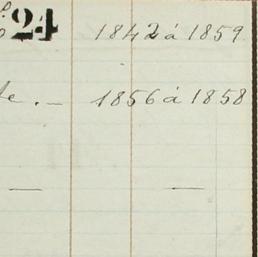 24 1842 á 1859
te. — 1856 á 1858
— —